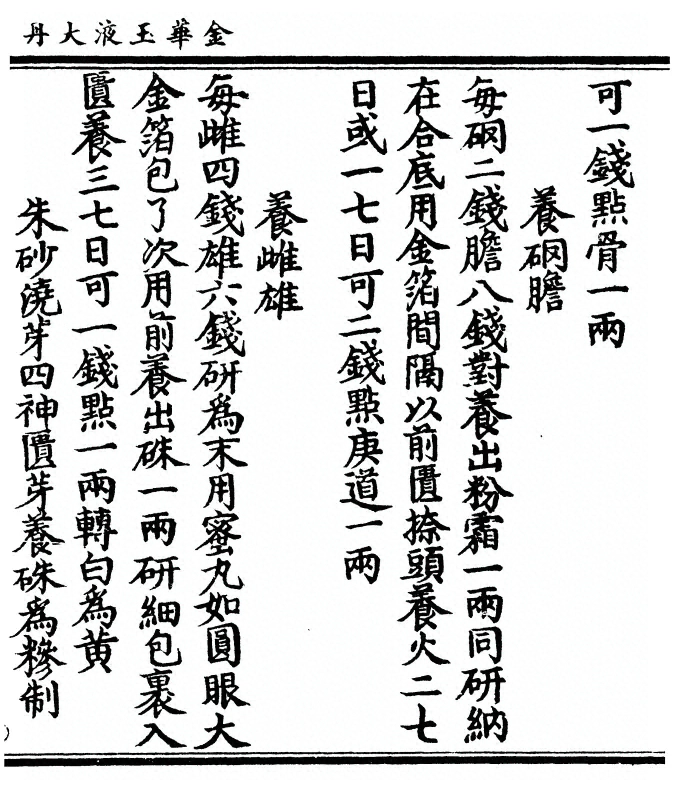 金華玉液大丹
可一錢點骨一兩
養硇膽
每硇二錢膽八錢對養出粉霜一兩同研納
在合底用金箔間隔以前匱捺頭養火二七
日或一七日可二錢點庚道一兩
養雌雄
每雌四錢雄六錢研為末用蜜丸如圓眼大
金箔包了次用前養出硃一兩研細包裹入
匱養三七日可一錢點一兩轉白為黃
朱砂澆芽四神匱芽養硃為糝制